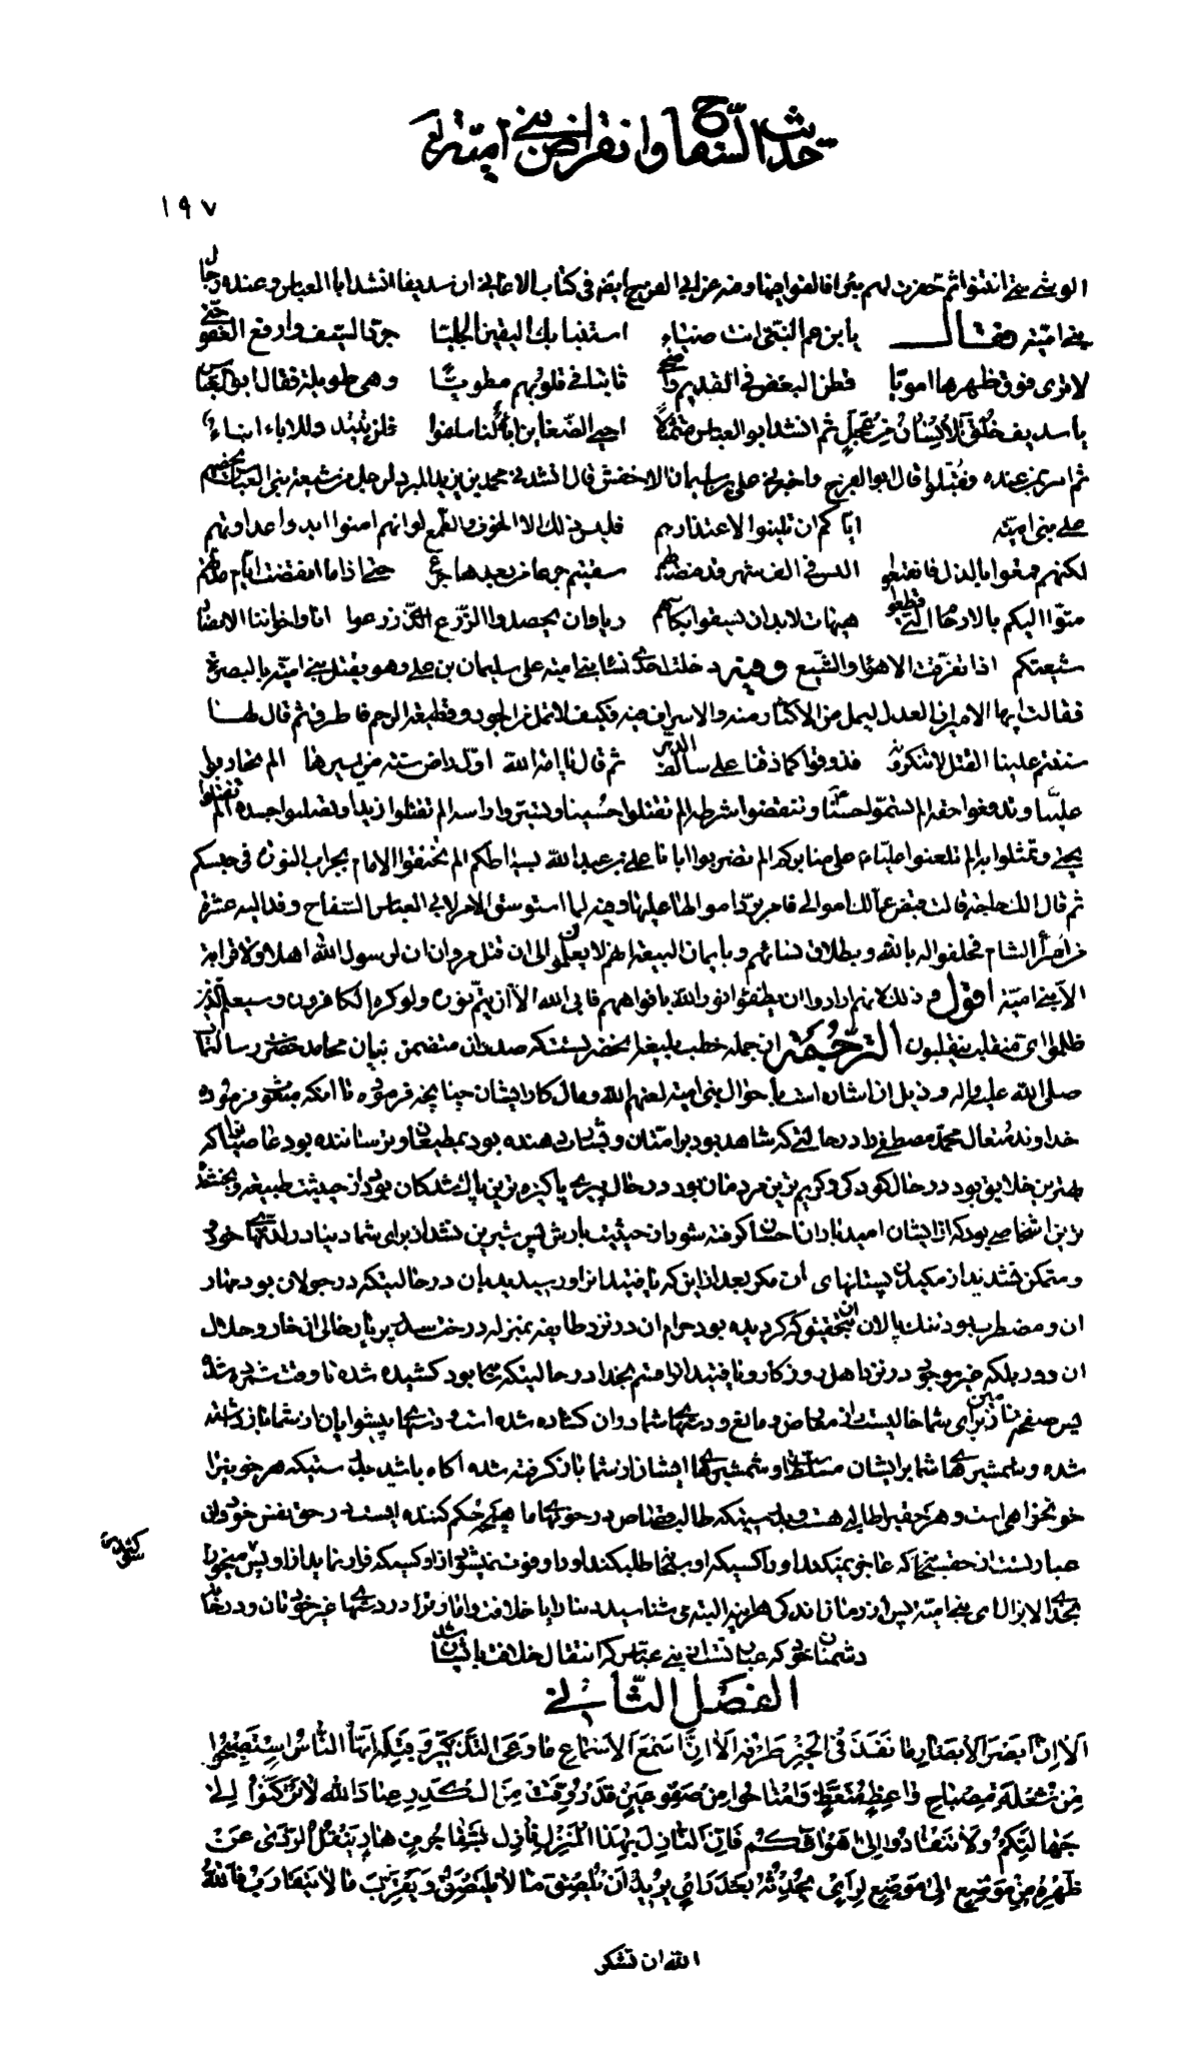 حديث السفاح وانقراض بني امية لع
١٩٧
الوشي حتى انتنوا ثم حفرت لهم بئر فالقوا فيها وفيه عن ابي الفرج ايضا في كتاب الاغاني ان سديفا انشد ابا العباس وعنده رجال
بني امية فقال يا بن عم النبي انت ضياء استبنا بك اليقين الجليا جرد السيف وارفع العفو حتى
لا ترى فوق ظهرها امويا قطن البغض في القديم واضحى ثابتا في قلوبهم مطويا وهى طويلة فقال ابو العباس
يا سديف خلق الإنسان من عجل ثم انشد ابو العباس متمثلا احيى الضغاين آباء لنا سلفوا فلن تبيد وللاباء ابناء
ثم امر بمن عنده فقتلوا قال ابو الفرج واخبرني على بن سليمان الاخفش قال انشدني محمد بن يزيد المبرد لرجل من شيعة بني العباس يحضهم
على بني امية اياكم ان تلينوا لاعتذارهم فليس ذلك الا الخوف والطمع لو انهم امنوا ابدوا عداوتهم
لكنهم قمعوا بالذل فانقمعوا اليس في الف شهر قد مضت لهم سقيتم جرعا من بعدها جرع حتى اذا ما انقضت ايام مدتهم
متوا اليكم بالارحام التي قطعوا هيهات لابد ان يسقوا بكاسهم ريا وان يحصدوا الزرع الذي زرعوا انا واخواننا الانصار
شيعتكم اذا تفرقت الاهواء والشيع وفيه دخلت احدى نساء بني امية على سليمان بن على وهو يقتل بني امية بالبصرة
فقالت ايها الامير ان العدل ليمل من الاكثار منه والاسراف فيه فكيف لا تمل من الجور وقطيعة الرحم فاطرق ثم قال لها
سننتم علينا القتل لا تنكرونه فذوقوا كما ذقنا على سالف الدهر ثم قال يا امة الله اول راض سنة من يسيرها الم تحاربوا
عليا وتدفعوا حقه الم تسموا حسنا وتنقضوا شرطه الم تقتلوا حسينا وتسيروا راسه الم تقتلوا زيدا وتصلبوا جسده الم تقتلوا
يحيى وتمثلوا به الم تلعنوا عليا على منابركم الم تضربوا ابانا على بن عبد الله بسياطكم الم تخنقوا الامام بجراب النورة في حبسكم
ثم قال الك حاجة قالت قبض عمالك اموالي فامر برد اموالها عليها وفيه لما استوسق الامر لابي العباس السفاح وفد اليه عشرة
من امراء الشام فحلفوا له بالله وبطلاق نسائهم وبايمان البيعة انهم لا يعلمون الى ان قتل مروان ان لرسول الله اهلا ولا قرابة
الا بني امية اقول وذلك لانهم ارادوا ان يطفئوا نور الله بافواههم فابى الله الا ان يتم نوره ولو كره الكافرون وسيعلم الذين
ظلموا اى منقلب ينقلبون الترجمة از جمله خطب بليغه آنحضرتست كه صدر آن متضمن بيان محامد حضرت رسالتماب
صلى الله عليه واله وذيل آن اشاره است باحوال بنى امية لعنهم الله ومال كار ايشان چنانچه فرموده تا آنكه مبعوث فرمود
خداوند متعال محمد مصطفى را در حالتى كه شاهد بود بر امتان وبشارت دهنده بود بمطيعان وترساننده بود عاصيانرا كه
بهترين خلايق بود در حال كودكى وكريم ترين مردمان بود در حال پيرى پاكيزه ترين پاك شدگان بود از حيثيت طبيعة وبخشنده
ترين اشخاصى بود كه از ايشان اميد باران احسان گرفته شود از حيثيت بارش پس شيرين نشد از براى شما دنيا در لذتهاى خود
ومتمكن نشديد از مكيدن پستانهاى آن مگر بعد از اين كه يافتيد آنرا ورسيديد بآن در حالتيكه در جولان بود مهار
آن ومضطرب بود تنگ پالان آن بتحقيق كه گرديده بود حرام آن در نزد طايفه بمنزله درخت سدر پربار خالى از خار وحلال
آن دور بلكه غير موجود در نزد اهل روزگار ويافتيد آنرا قسم بخدا در حالتيكه سايه بود كشيده شده تا وقت شمرده شده
پس صفحه زمين از براى شما خاليست از معارض ومانع ودستهاى شما در آن گشاده شده است ودستهاى پيشوايان از شما باز داشته
شده وشمشيرهاى شما بر ايشان مسلط است وشمشيرهاى ايشان از شما باز گرفته شده آگاه باشيد بدرستيكه هر خونى را
خونخواهى است وهر حقيرا طالبى هست وبدرستيكه طالب قصاص در خونهاى ما همچو حكم كننده ايست در حق نفس خود وآن
عبارتست از حقتعالى كه عاجز نميكند او را كسيكه او سبحانه طلب كند او را وفوت نميشود از او كسيكه فرار نمايد از او پس قسم ميخورم
بخداى لايزال اى بنى امية پس از زمان اندكى هراينه البته مى شناسيد دنيا را يا خلافت وامارت را در دستهاى غير خودتان ودر خانه
دشمنان خود كه عبارتست از بني عباس كه انتقال خلافت بايشان شد
الفصل الثاني
اَلا اِنَّ اَبْصَرَ الاَبْصارِ ما نَفَذَ فِى الْخَيْرِ طَرْفُهُ اَلا اِنَّ اَسْمَعَ الاَسْماعِ ما وَعَى التَّذْكيرَ وَقَبِلَهُ اَيُّهَا النّاسُ اسْتَصْبِحُوا
مِنْ شُعْلَةِ مِصْباحِ واعِظٍ مُتَّعِظٍ وَامْتاحُوا مِنْ صَفْوِ عَيْنٍ قَدْ رُوِّقَتْ مِنَ الْكَدَرِ عِبادَ اللهِ لا تَرْكَنُوا اِلى
جَهالَتِكُمْ وَلا تَنْقادُوا اِلى اَهْوائِكُمْ فَاِنَّ النّازِلَ بِهذَا الْمَنْزِلِ نازِلٌ بِشَفا جُرُفٍ هارٍ يَنْقُلُ الرَّدى عَنْ
ظَهْرِهِ مِنْ مَوْضِعٍ اِلى مَوْضِعٍ لِرَأْىٍ يُحْدِثُهُ بَعْدَ رَأْىٍ يُريدُ اَنْ يُلْصِقَ ما لا يَلْتَصِقُ وَيُقَرِّبَ ما لا يَتَقارَبُ فَاللهَ
الله ان تشكو